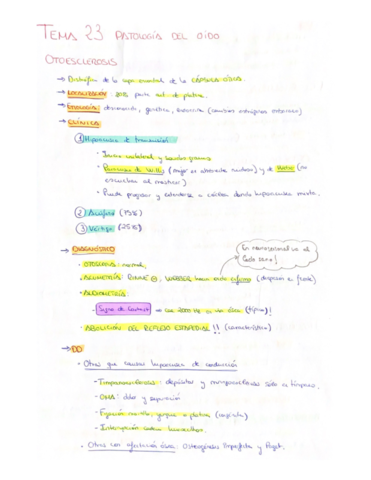 TEMA 23 PATOLOGÍA DEL OÍDO
OTOESCLEROSIS
→ Distrofia de la capa encondral de la CÁPSULA ÓTICA.
→ LOCALIZACIÓN: 80% parte ant. de platina.
→ ETIOLOGÍA: desconocida, genética,
→ CLÍNICA
① Hipoacusia de transmisión
• Inicio unilateral y bandas graves
• Paracusia de Willis (mejor en ambiente ruidoso) y de Weber (no
escuchan al masticar)
• Puede progresar y extenderse a cóclea dando hipoacusia mixta.
② Acúfeno (75%)
③ Vértigo (25%)
→ DIAGNÓSTICO
En neurosensorial va al
lado sano!
• OTOSCOPIA: normal,
• ACUMETRÍA RINNE ⊖, WEBER hacia oído enfermo
• AUDIOMETRÍA
Signo de Carhart → cae 2000 Hz a vía ósea (típico)!
• ABOLICIÓN DEL REFLEJO ESTAPEDIAL!! (característico)
→ DD
• Otras que causan hipoacusia de conducción
- Timpanoesclerosis: depósitos y sólo a tímpano.
- OMA: dolor y supuración
- Fijación martillo, yunque o platina (congénita)
- Interrupción cadena huesecillos.
• Otras con afectación ósea: Osteogénesis Imperfecta y Paget.